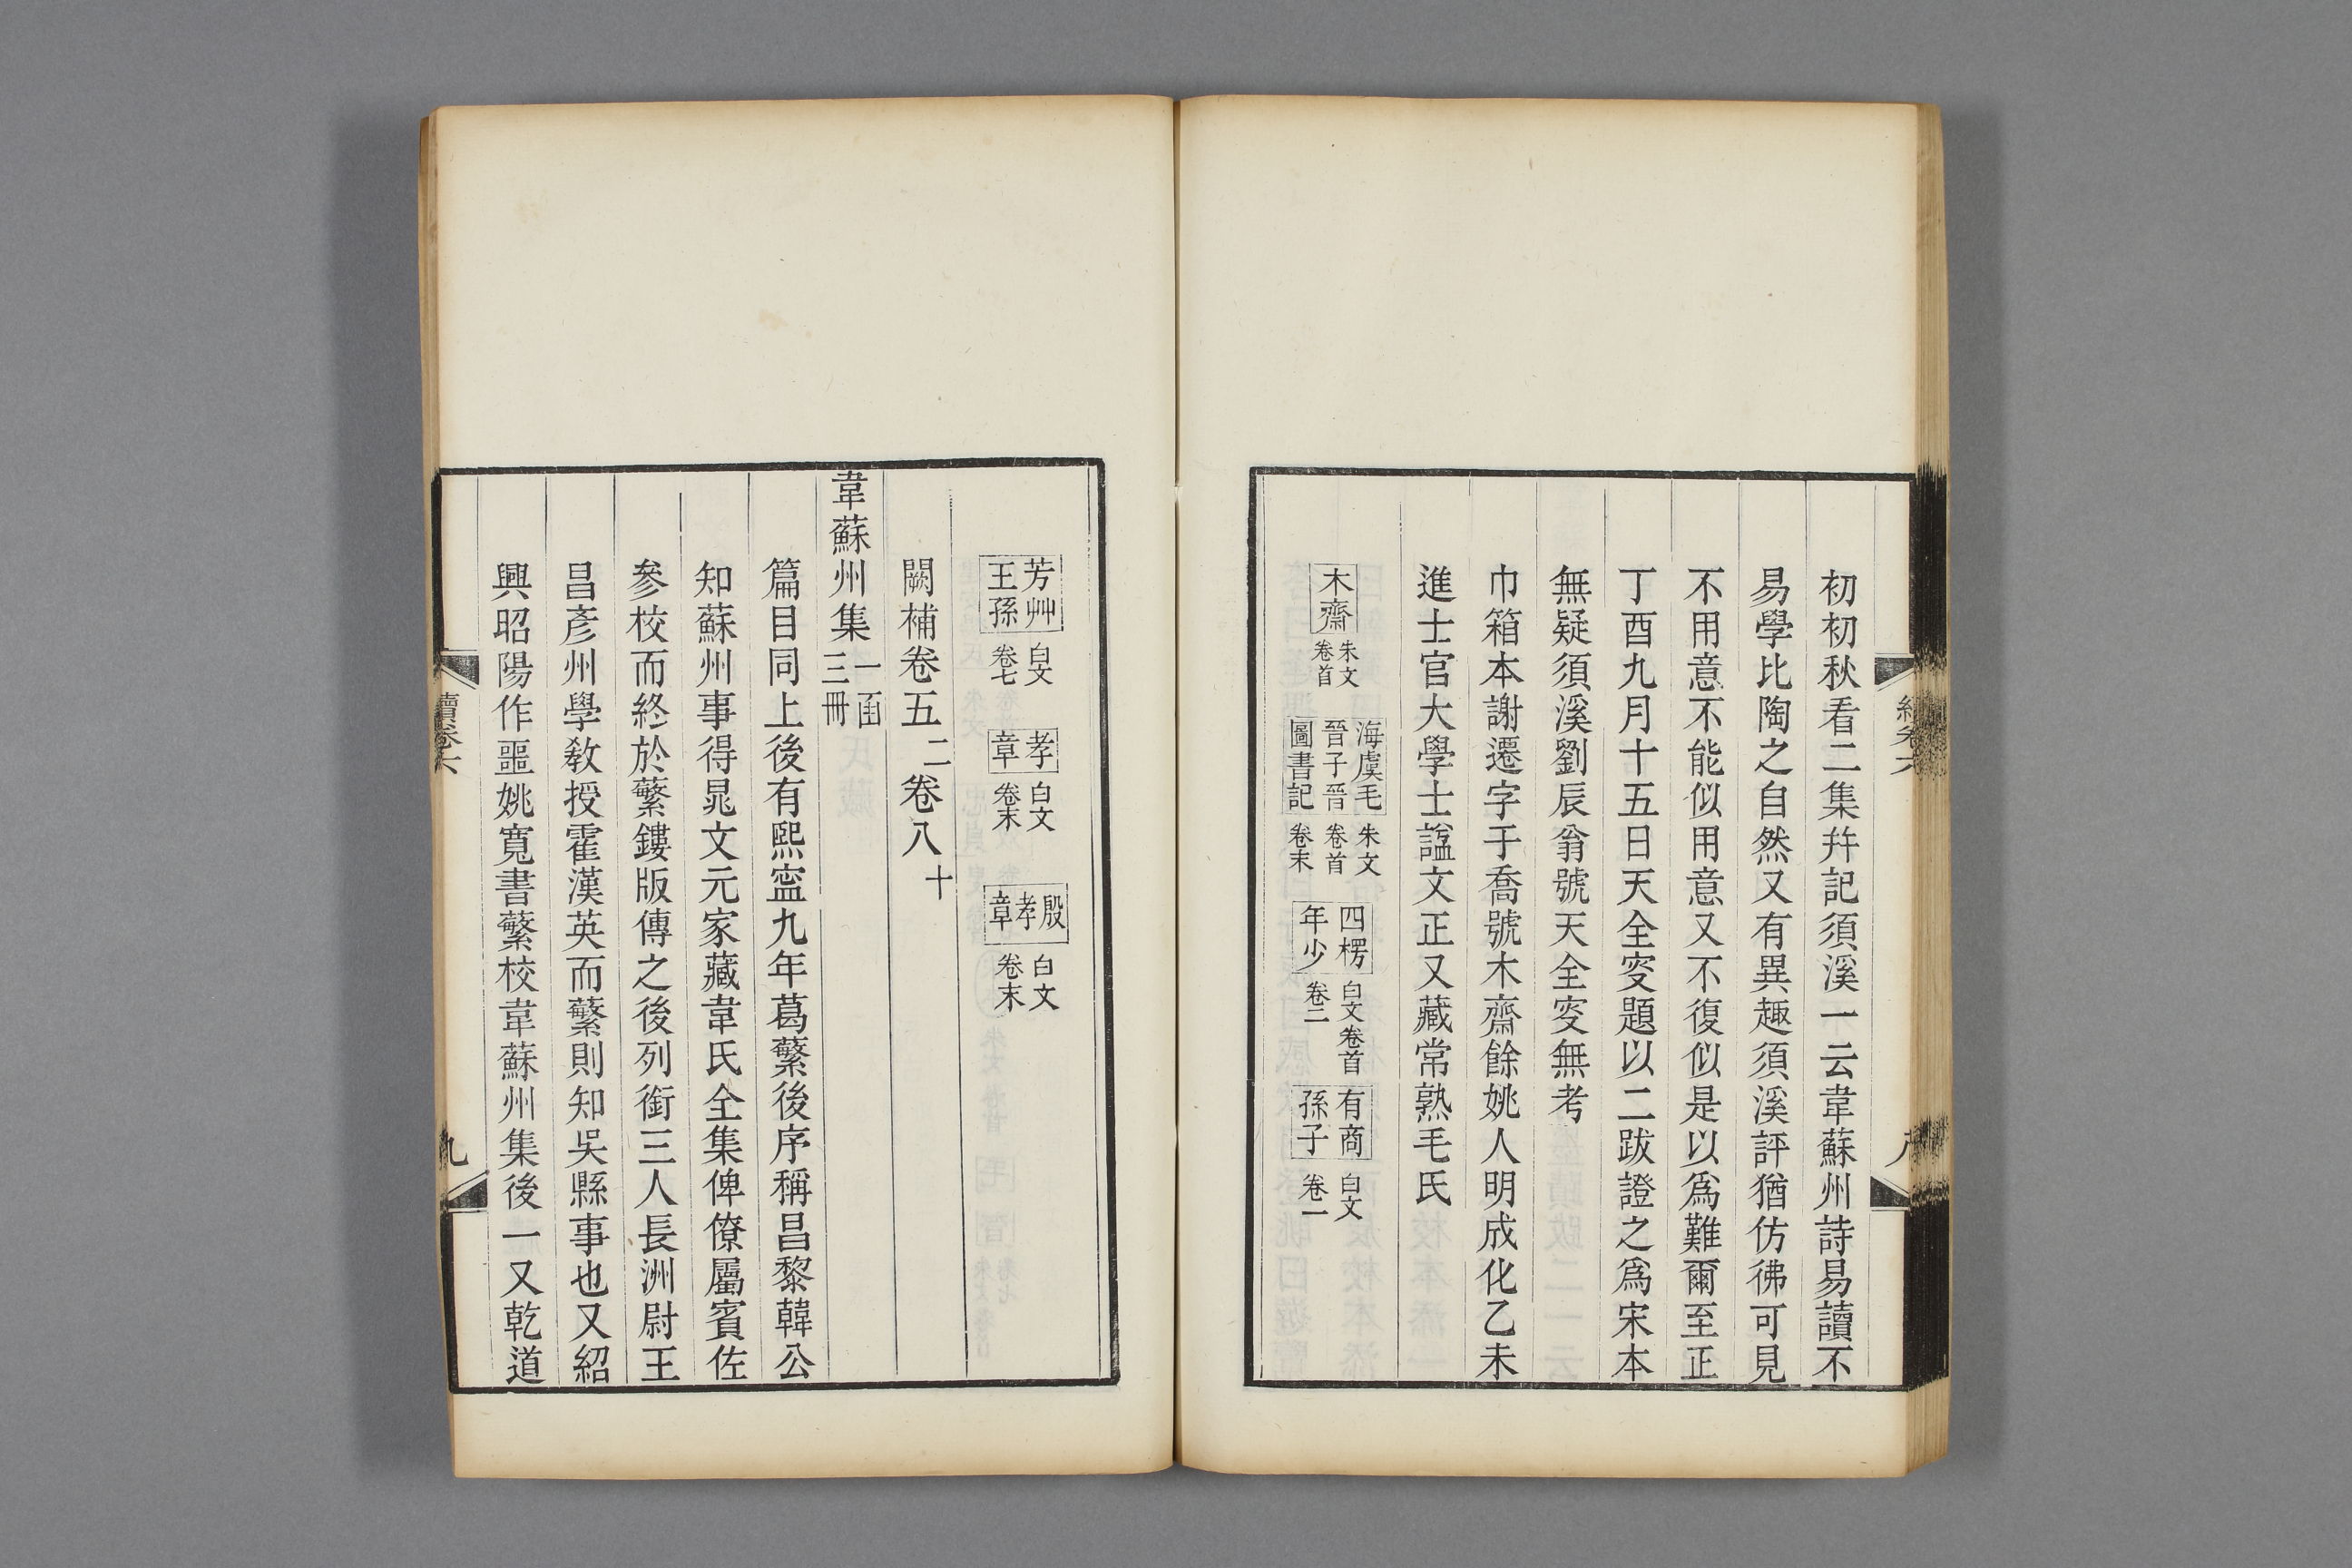 初初秋看二集幷記須溪一云韋蘇州詩易讀不
易學比陶之自然又有異趣須溪評猶仿彿可見
不用意不能似用意又不復似是以爲難爾至正
丁酉九月十五日天全叜題以二跋證之爲宋本
無疑須溪劉辰翁號天全叜無考
巾箱本謝遷字于喬號木齋餘姚人明成化乙未
進士官大學士諡文正又藏常熟毛氏
木齋 朱文卷首 海虞毛晉子晉圖書記 朱文卷首卷末 四楞年少 白文卷首卷二 有商孫子 白文卷一
續卷六 八
芳艸王孫 白文卷七 孝章 白文卷末 殷孝章 白文卷末
闕補卷五二卷八十
韋蘇州集 一函三冊
篇目同上後有熙寍九年葛蘩後序稱昌黎韓公
知蘇州事得晁文元家藏韋氏全集俾僚屬賓佐
參校而終於蘩鏤版傳之後列銜三人長洲尉王
昌彥州學敎授霍漢英而蘩則知吳縣事也又紹
興昭陽作噩姚寬書蘩校韋蘇州集後一又乾道
續卷六 九